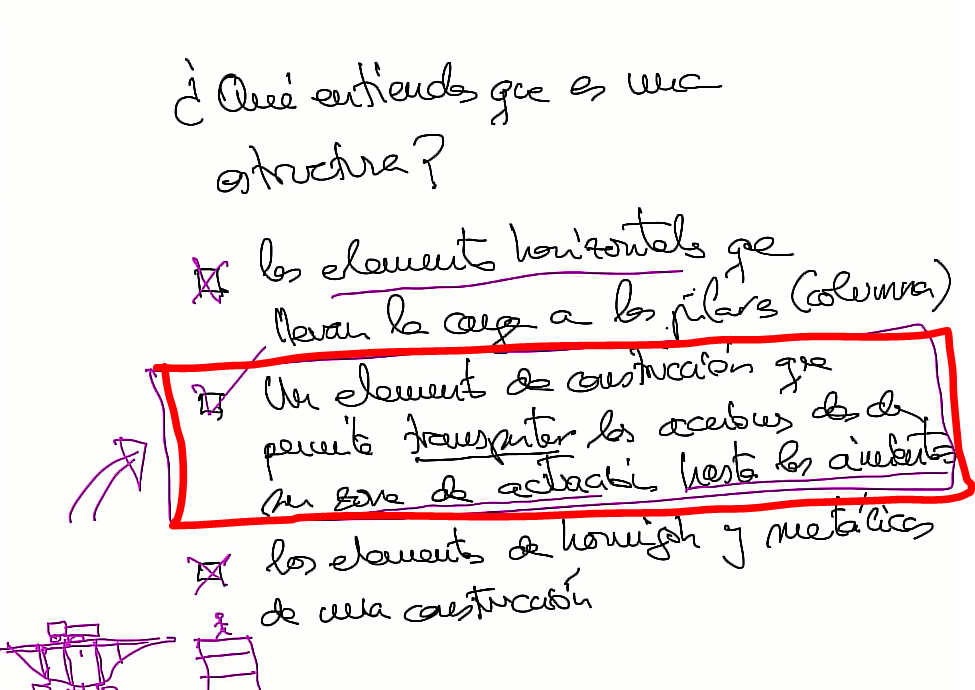 ¿Qué entiendes que es una
estructura?
los elementos horizontales que
llevan la carga a los pilares (columna)
Un elemento de construcción que
permite transportar las acciones desde
su zona de actuación hasta los cimientos
los elementos de hormigón y metálicos
de una construcción